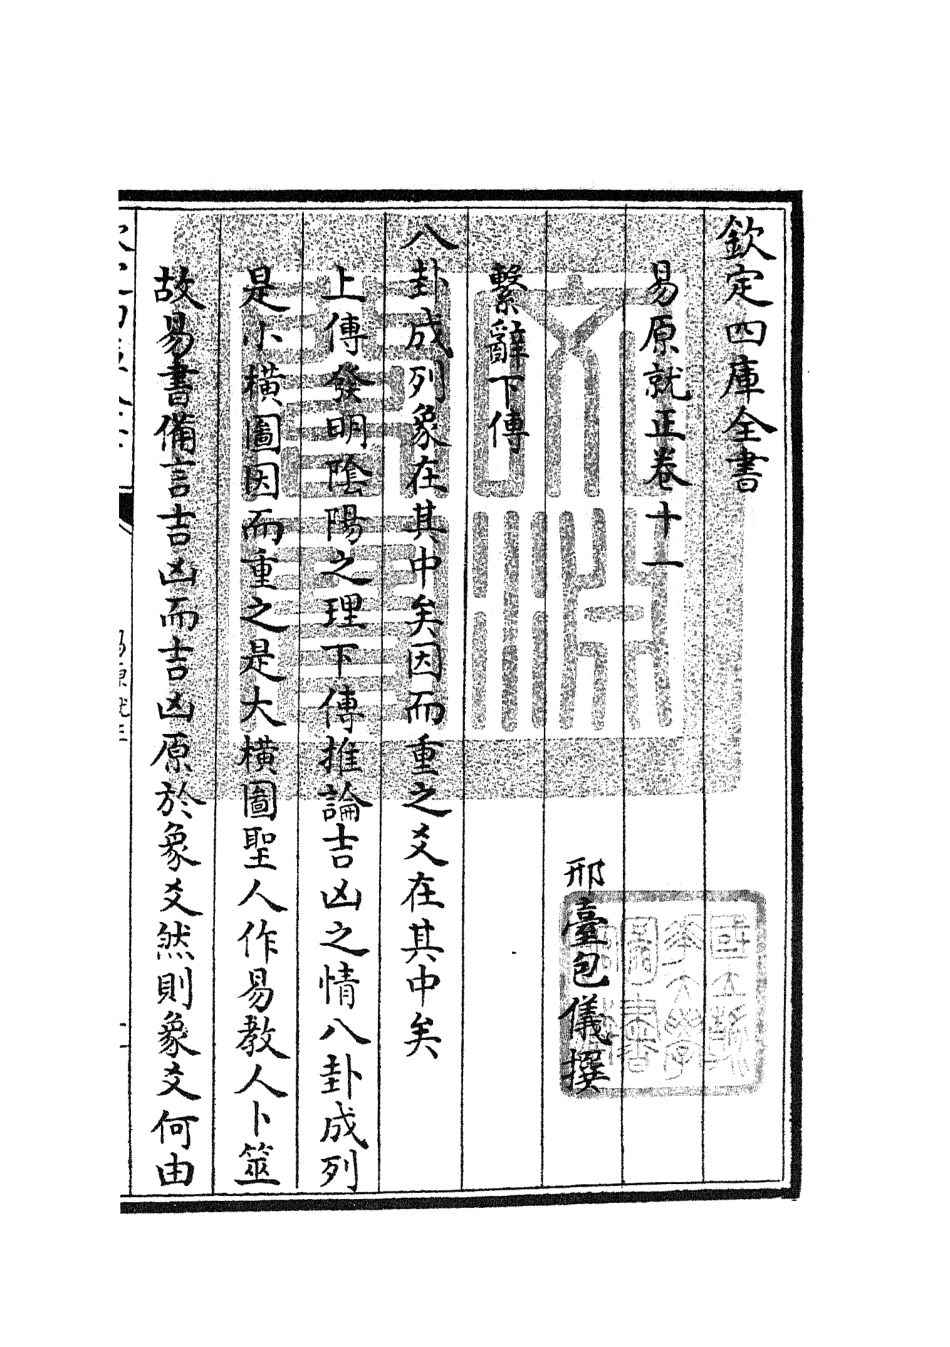 欽定四庫全書
易原就正卷十一
邢臺包儀撰
繫辭下傳
八卦成列象在其中矣因而重之爻在其中矣
上傳發明陰陽之理下傳推論吉凶之情八卦成列
是小橫圖因而重之是大橫圖聖人作易教人卜筮
故易書備言吉凶而吉凶原於象爻然則象爻何由